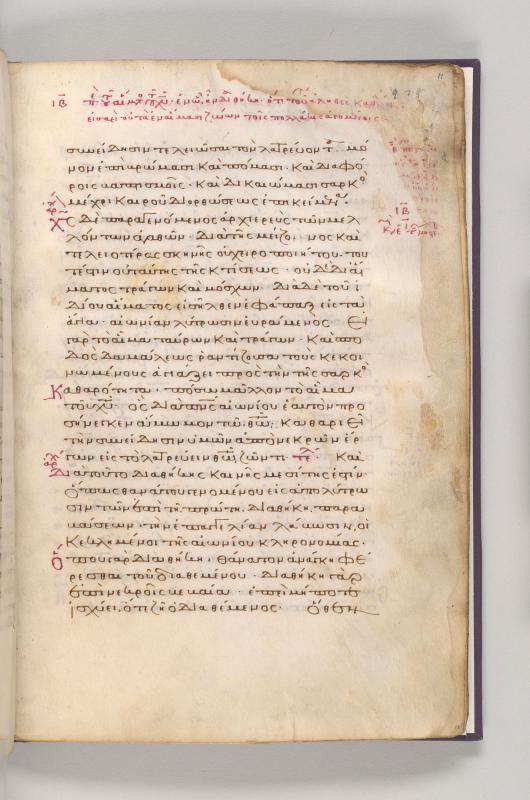 συνείδησιν τελειῶσαι τὸν λατρεύοντα. μό
νον ἐπὶ βρώμασι καὶ πόμασι. καὶ διαφό
ροις βαπτισμοῖς. καὶ δικαιώμασι σαρκὸ
μέχρι καιροῦ διορθώσεως ἐπικείμενα.
Χς δὲ παραγενόμενος ἀρχιερεὺς τῶν μελ
λόντων ἀγαθῶν. διὰ τῆς μείζονος καὶ
τελειοτέρας σκηνῆς οὐ χειροποιήτου. του
τέστιν οὐ ταύτης τῆς κτίσεως. οὐδὲ δι' αἵ
ματος τράγων καὶ μόσχων. διὰ δὲ τοῦ ἰ
δίου αἵματος εἰσῆλθεν ἐφάπαξ εἰς τὰ
ἅγια. αἰωνίαν λύτρωσιν εὑράμενος. Εἰ
γὰρ τὸ αἷμα ταύρων καὶ τράγων. καὶ σπο
δὸς δαμάλεως ῥαντίζουσα τοὺς κεκοι
νωμένους ἁγιάζει πρὸς τὴν τῆς σαρκὸ
καθαρότητα. πόσω μᾶλλον τὸ αἷμα
τοῦ χυ. ὃς διὰ πνς αἰωνίου ἑαυτὸν προ
σήνεγκεν ἄμωμον τῶ θω. καθαριεῖ
τὴν συνείδησιν ὑμῶν ἀπὸ νεκρῶν ἔρ
γων εἰς τὸ λατρεύειν θω ζῶντι. τε Καὶ
διὰ τοῦτο διαθήκης καινῆς μεσίτης ἐστίν.
ὅπως θανάτου γενομένου εἰς ἀπολύτρω
σιν τῶν ἐπὶ τῇ πρώτῃ διαθήκῃ παρα
βάσεων. τὴν ἐπαγγελίαν λάβωσιν οἱ
κεκλημένοι τῆς αἰωνίου κληρονομίας.
Ὅπου γὰρ διαθήκη, θάνατον ἀνάγκη φέ
ρεσθαι τοῦ διαθεμένου. διαθήκη γὰρ
ἐπὶ νεκροῖς βεβαία. ἐπεὶ μήποτε
ἰσχύει, ὅτι ζῇ ὁ διαθέμενος. ὅθεν